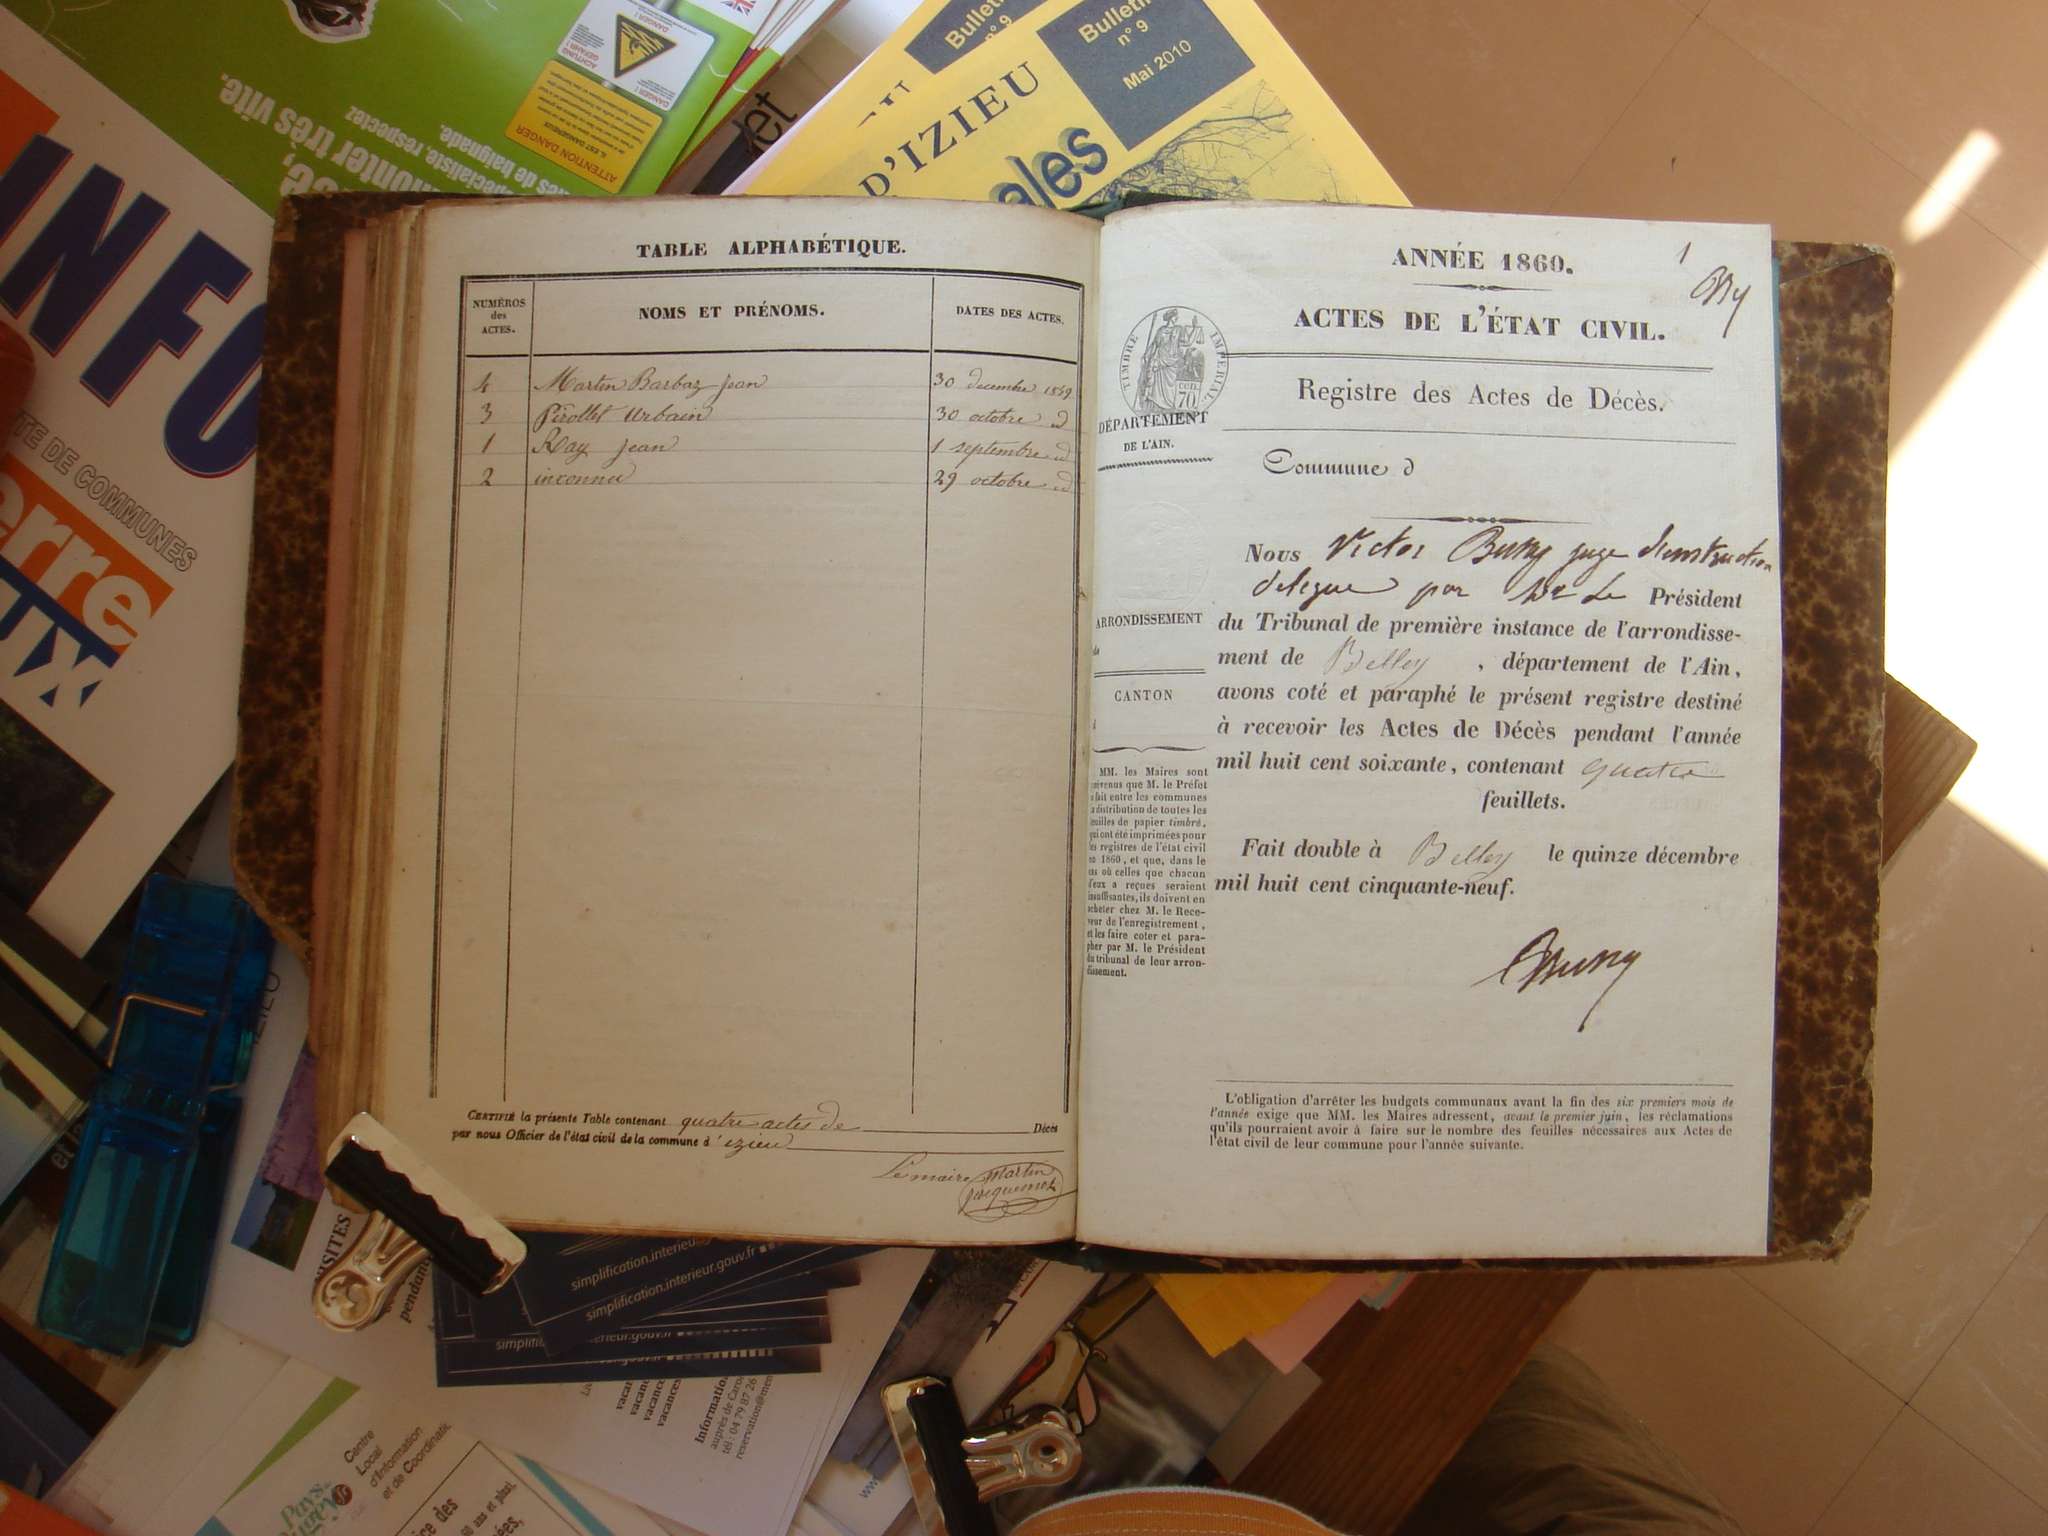 TABLE ALPHABÉTIQUE.
NUMÉROS
des
ACTES.
NOMS ET PRÉNOMS.
DATES DES ACTES.
4 Martin Barbaz Jean 30 décembre 1859
3 Pirollet Urbain 30 octobre id
1 Roy Jean 1 septembre id
2 inconnu 29 octobre id
CERTIFIÉ la présente Table contenant quatre actes de Décès
par nous Officier de l'état civil de la commune d'izieu
Le maire Martin
Jacquemet
1
ANNÉE 1860.
ACTES DE L'ÉTAT CIVIL.
TIMBRE IMPÉRIAL
70
Registre des Actes de Décès.
DÉPARTEMENT
DE L'AIN.
Commune d
Nous Victor juge d'instruction
délégué par Mr Le Président
du Tribunal de première instance de l'arrondisse-
ment de Belley, département de l'Ain,
avons coté et paraphé le présent registre destiné
à recevoir les Actes de Décès pendant l'année
mil huit cent soixante, contenant quatre
feuillets.
Fait double à Belley le quinze décembre
mil huit cent cinquante-neuf.
ARRONDISSEMENT
CANTON
MM. les Maires sont
prévenus que M. le Préfet
a fait entre les communes
la distribution de toutes les
feuilles de papier timbré,
qui ont été imprimées pour
les registres de l'état civil
en 1860, et que, dans le
cas où celles que chacun
d'eux a reçues seraient
insuffisantes, ils doivent en
acheter chez M. le Rece-
veur de l'enregistrement,
et les faire coter et para-
pher par M. le Président
du tribunal de leur arron-
dissement.
L'obligation d'arrêter les budgets communaux avant la fin des six premiers mois de
l'année exige que MM. les Maires adressent, avant le premier juin, les réclamations
qu'ils pourraient avoir à faire sur le nombre des feuilles nécessaires aux Actes de
l'état civil de leur commune pour l'année suivante.
Bulletin
n° 9
Bulletin
n° 9
Mai 2010
D'IZIEU
ales
monter très vite.
respectez
de baignade.
ATTENTION DANGER
DANGER !
INFO
TE DE COMMUNES
erre
UX
simplification.interieur
simplification.interieur.gouv.fr
erieur.gouv.fr
Information
auprès de
tél : 04 79 87 26
reservation@
vacances
Centre
Local
d'Information
et de Coordination
Pays